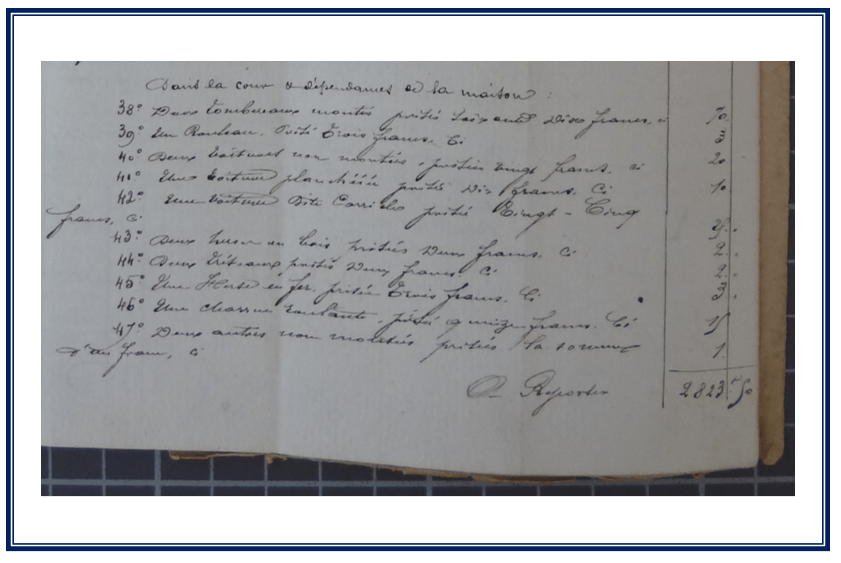 Dans la cour & dépendances de la maison :
38° Deux tombereaux montés prisés soixante dix francs, ci 70.
39° Un Rouleau, Prisé Trois francs. Ci 3.
40° Deux voitures non montées, prisées vingt francs. ci 20
41° Une Voiture planchéiée prisée Dix francs. Ci 10.
42° Une Voiture dite Carriole prisée Vingt-Cinq
francs, ci 25.
43° Deux herses en bois prisées Deux francs. Ci 2.
44° Deux Tréteaux prisés Deux francs Ci 2.
45° Une Herse en fer, prisée Trois francs. Ci 3.
46° Une charrue roulante, prisée quinze francs. Ci 15
47° Deux autres non montées prisées la somme
d'un franc, ci 1.
A Reporter 2823.50